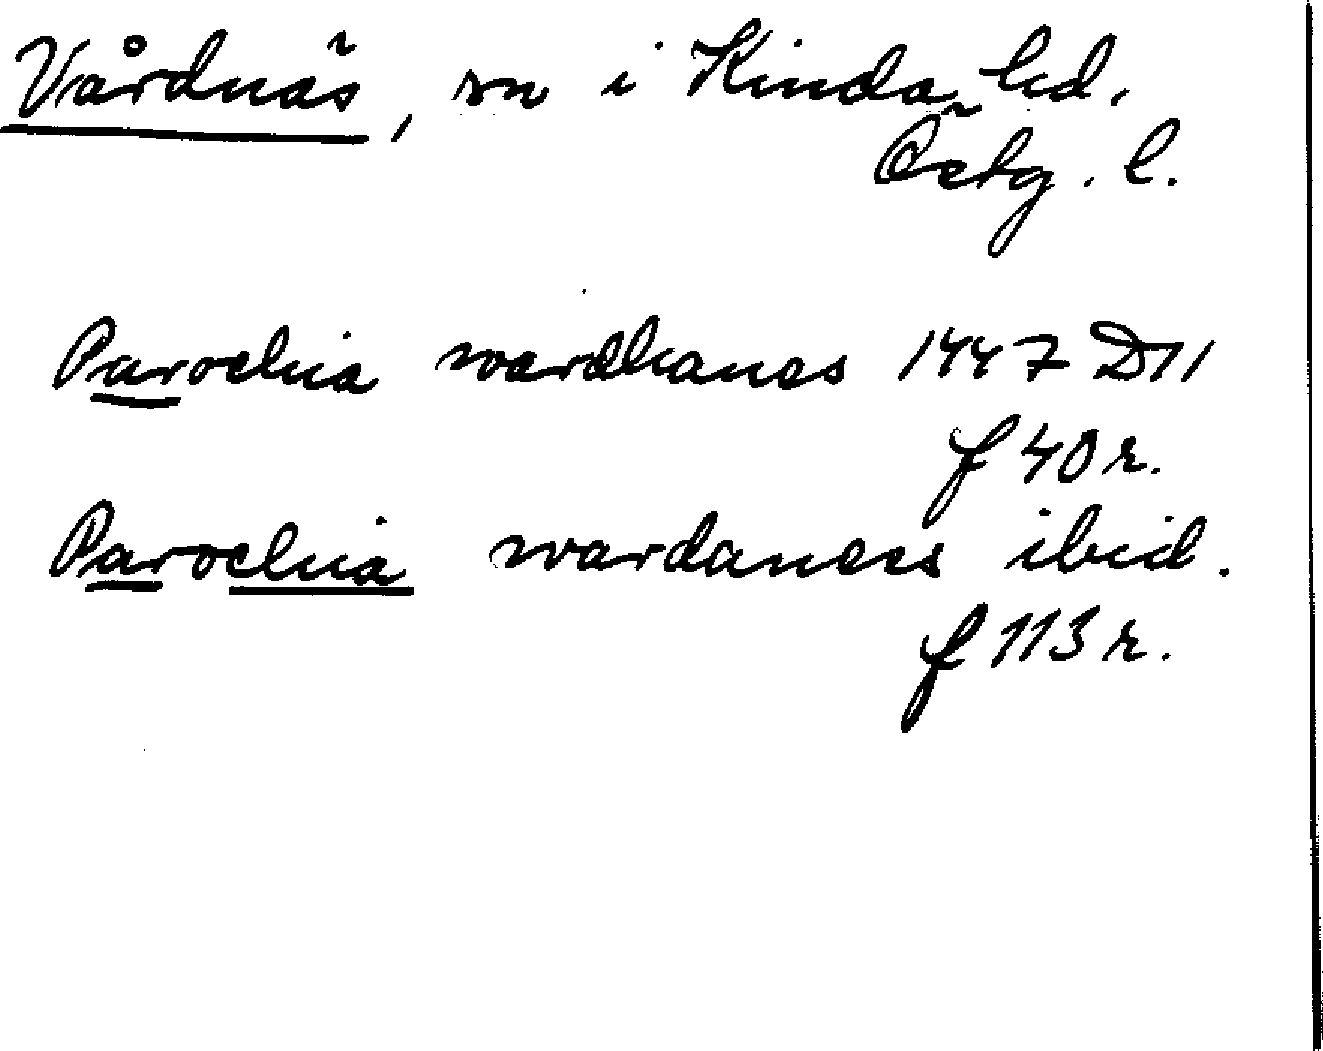 Vårdnäs, sn i Kinda hd.
Östg. l.
Parochia wardhanes 1447 D11
f 40 r.
Parochia wardaness ibid.
f 113 r.